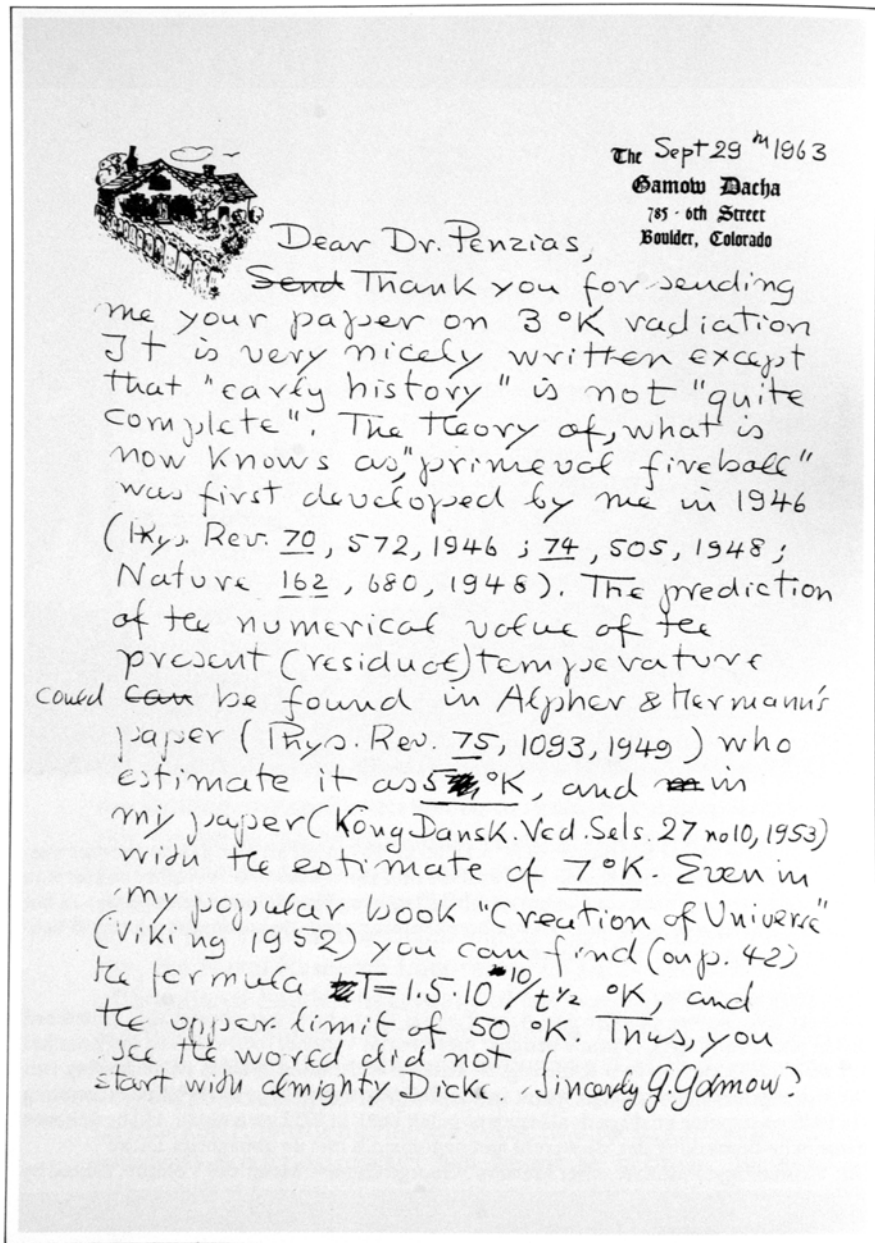 The Sept 29th 1963
Gamow Dacha
785 - 6th Street
Boulder, Colorado
Dear Dr. Penzias,
Send Thank you for sending
me your paper on 3 °K radiation
It is very nicely written except
that "early history" is not "quite
complete". The theory of, what is
now knows as, "primeval fireball"
was first developed by me in 1946
(Phys. Rev. 70, 572, 1946; 74, 505, 1948;
Nature 162, 680, 1948). The prediction
of the numerical value of the
present (residual) temperature
could can be found in Alpher & Hermann's
paper (Phys. Rev. 75, 1093, 1949) who
estimate it as 5 °K, and in
my paper (Kong Dansk. Ved. Sels. 27 no 10, 1953)
with the estimate of 7 °K. Even in
my popular book "Creation of Universe"
(Viking 1952) you can find (on p. 42)
the formula T=1.5·10¹⁰/t½ °K, and
the upper limit of 50 °K. Thus, you
see the world did not
start with almighty Dicke. Sincerly G. Gamow